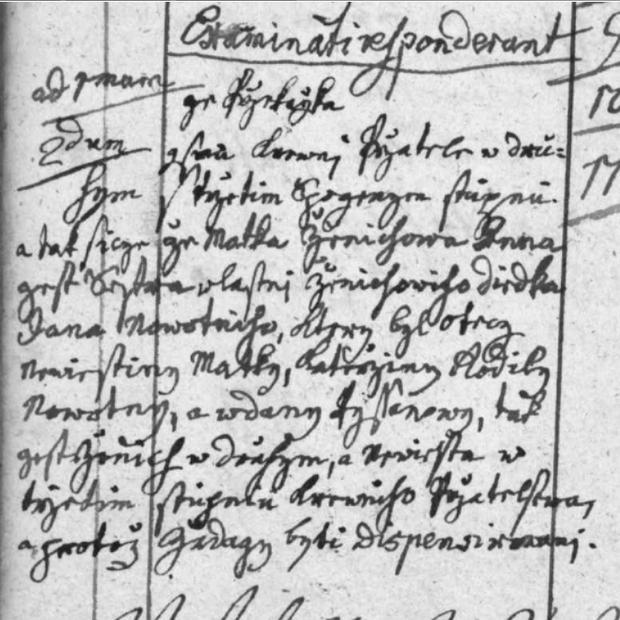 Examinati responderant
ad 1mam ge Przekazka
2dum gsau krewnj Przatele w dru:
hym Trzetim Spogenym stupnu.
a tak sicze ze Matka Zenichowa Anna
gest Sestra wlastnj Zenichowiho diedka
Jana Nowotniho, ktery byl otecz
newiestiny Matky, Katerziny Rodily
Nowotny, a wdany, tak
gest Zenich w druhym, a newiesta w
trzetim stupniu krewniho Przatelstwa,
a protoz Zadagy byti dispensirowani.